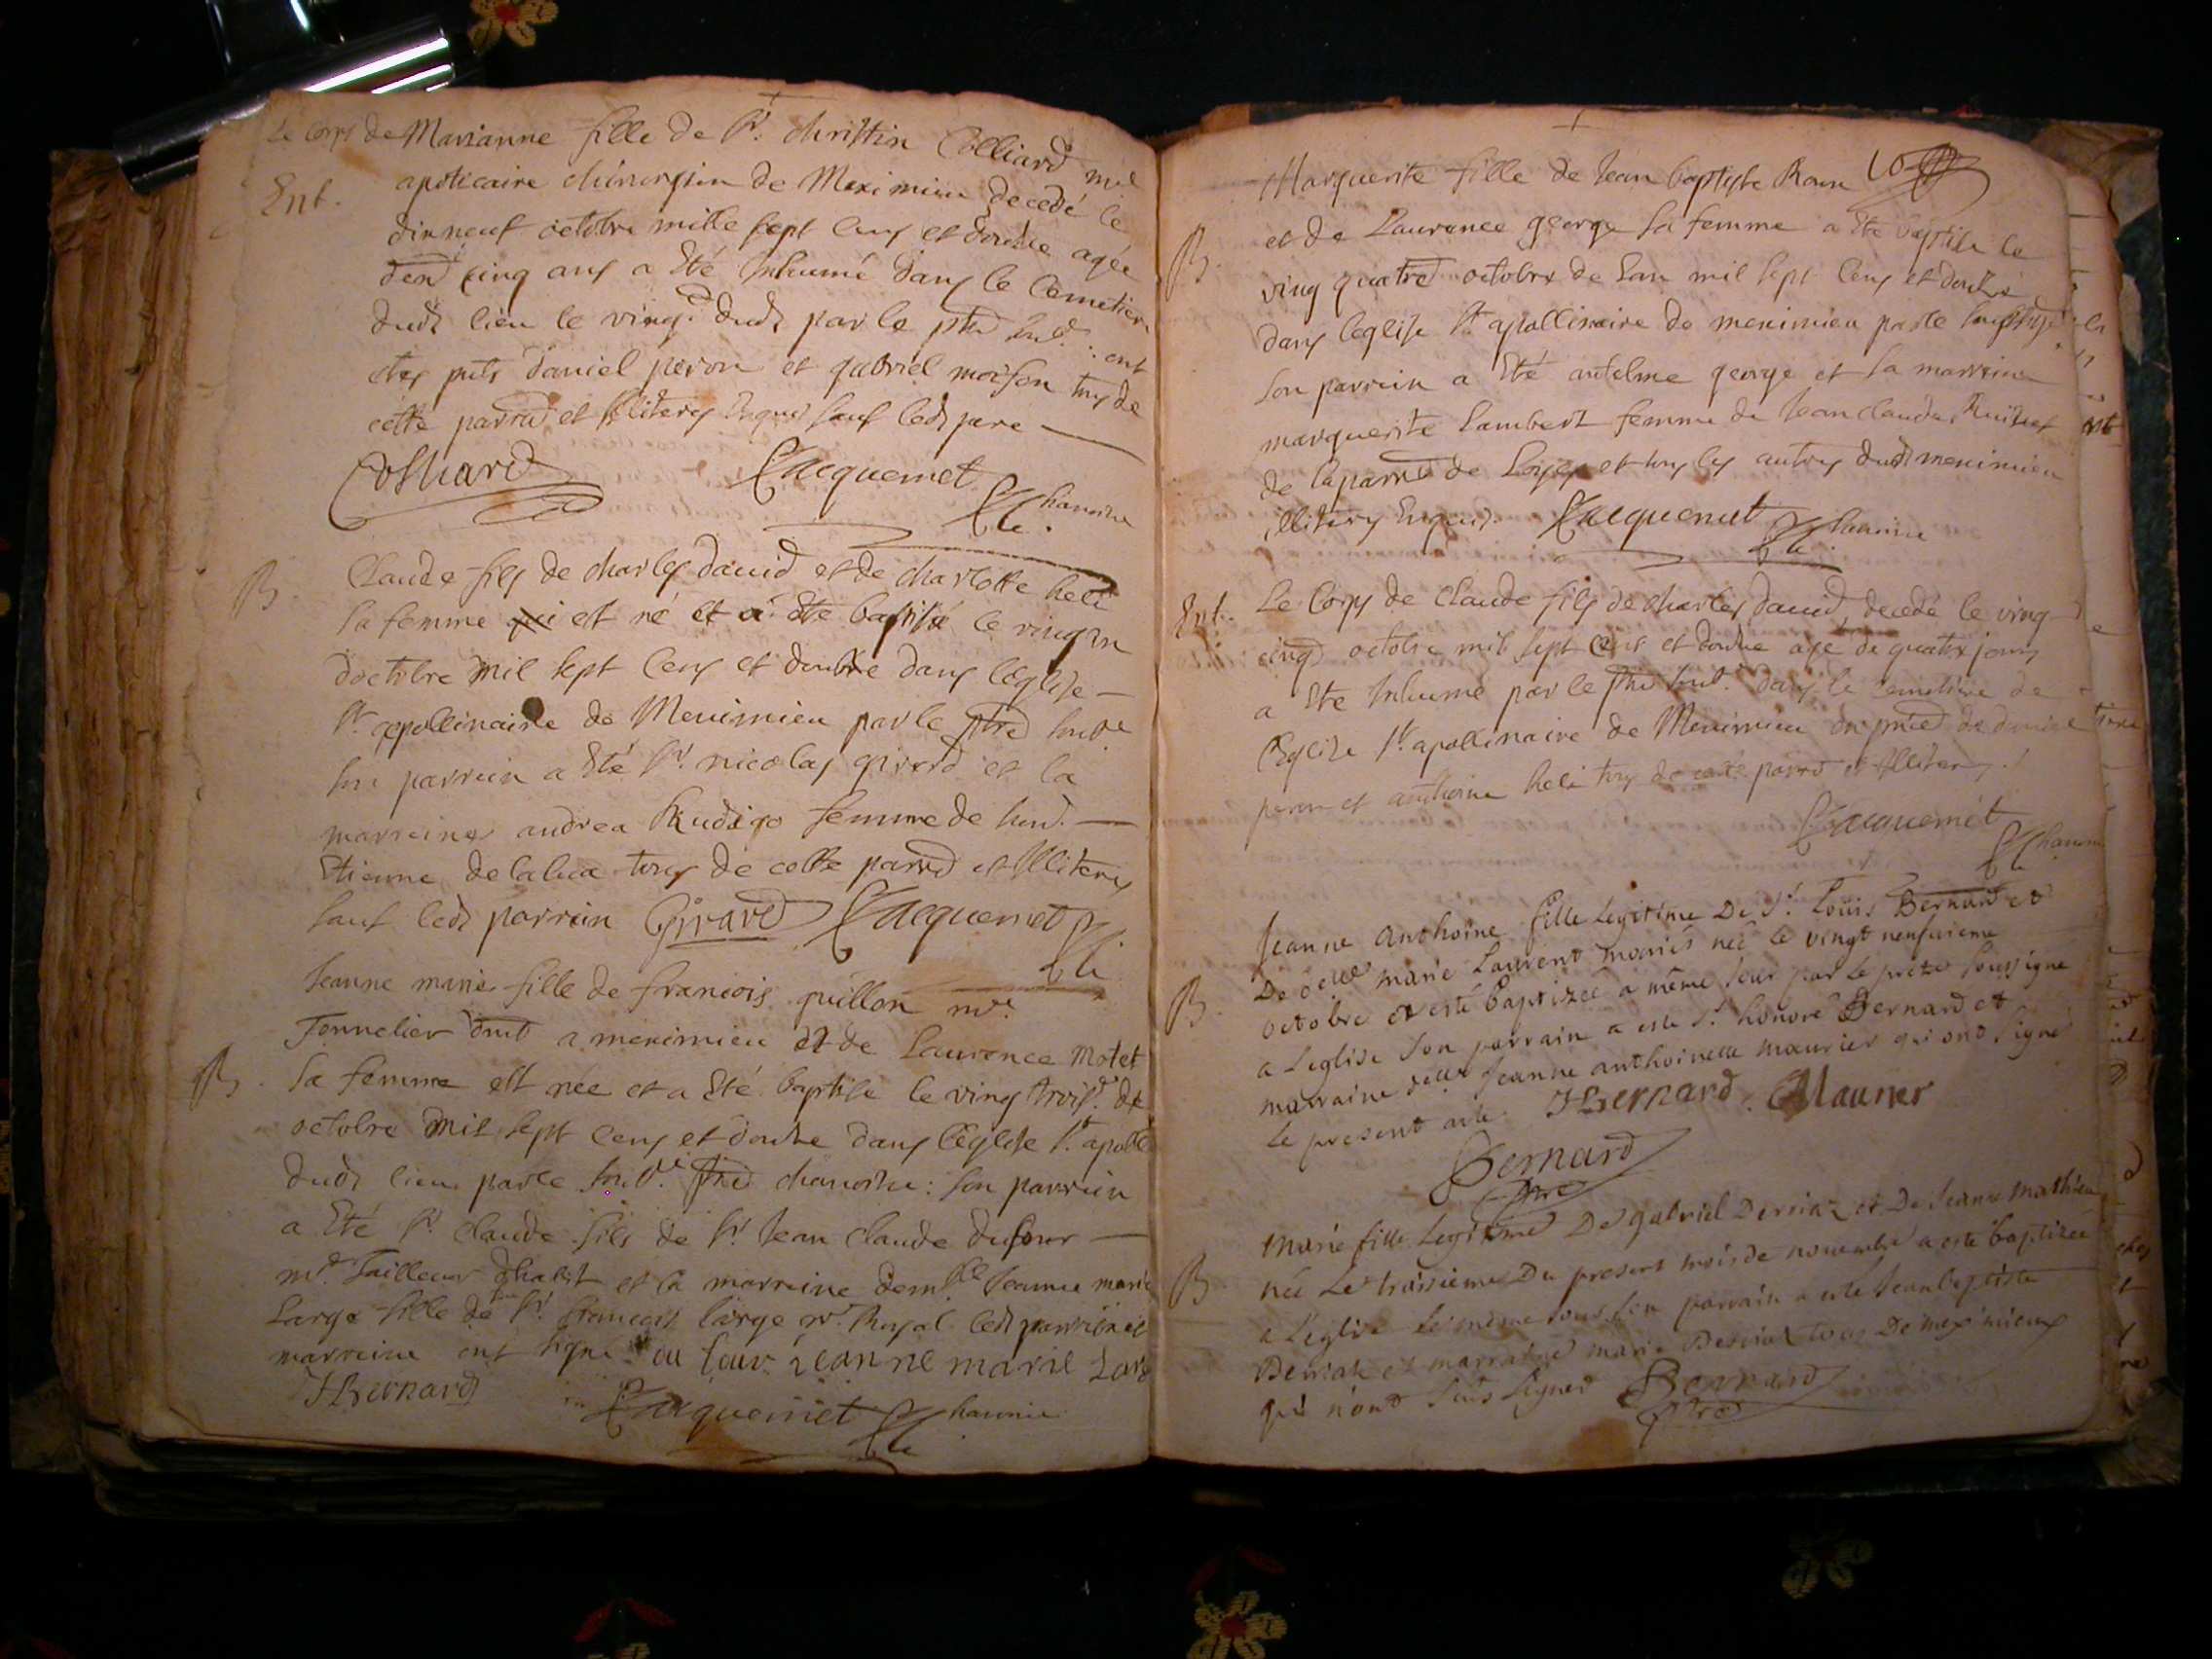 Le corps de Marianne fille de Sr. christin Colliard me
Ent.
apoticaire chirurgien de Meximieu decedé le
dixneuf octobre mille sept cens et douze agée
cinq ans a Eté Inhumé dans le Cemetiere
dudt lieu le ving. dudt par le ptre ont
Daniel peron et gabriel moison tous de
cette parre et Illiterés Enquis sauf ledt pere
Colliard Jacquemet
Chanoine
B.
Claude fils de charles David et de charlotte heli
sa femme est né et a Eté baptisé le ving un
d'octobre mil sept cens et douze dans l'Eglise
St. appollinaire de Meximieu par le ptre
son parrein a Eté Sr. nicolas girard et la
marreine andrea Rudigo femme de
Etienne delalua tous de cette parre et Illiterés
sauf ledt parrein Girard Jacquemet
Jeanne marie fille de francois guillon me.
Tonnelier a meximieu et de Laurence Motet
B.
sa femme est née et a Eté baptisé le ving trois. de
octobre mil sept cens et douze dans l'Eglise St. apolli
dudt lieu par le ptre chanoine: son parrein
a Eté Sr. Claude fils de Sr. Jean Claude dufour
me. Tailleur d'habit et la marreine Jeanne marie
Large fille de Sr. francois large Royal ledt parrein et
marreine ont signé. du four jeanne marie Larg
JBernard
Jacquemet Chanoine
Marguerite fille de Jean baptiste
B.
et de Laurence george sa femme a Eté baptisé le
ving quatre octobre de Lan mil sept cens et douze
dans leglise St apollinaire de meximieu par le
son parrein a Eté antelme george et sa marreine
marguerite Lambert femme de Jean claude
de la parre de Loyes et tous les autres dudt meximieu
illiterés Enquis. Jacquemet
Chanoine
Ent.
Le Corps de Claude fils de charles David decedé le ving
cinq octobre mil sept cens et douze agé de quatre jours
a Eté Inhumé par le ptre dans le cemetiere de
l'Eglise St. apollinaire de Meximieu de
peron et anthoine heli tous de cette parre et Illiterés.
Jacquemet
Chanoine
Jeanne Anthoine fille Legitime De Sr. Louis Bernard et
De marie Laurent mariés neé le vingt neufuieme
B.
octobre et esté baptizeé a même jour par le pretre soussigné
a Leglise son parrain a esté Sr. honoré Bernard et
marraine Jeanne anthoinette maurier qui ont signé
le present acte. JBernard. Maurier
Bernard
ptre
Marie fille Legitime De gabriel Derriaz et De Jeanne Mathieu
B.
neé Le troisieme Du present mois de nouembre a esté baptizeé
a L'eglise Le même jour son parrain a esté Jean baptiste
Derriaz et marraine marie Derriaz tous De meximieux
qui n'ont Bernard
ptre